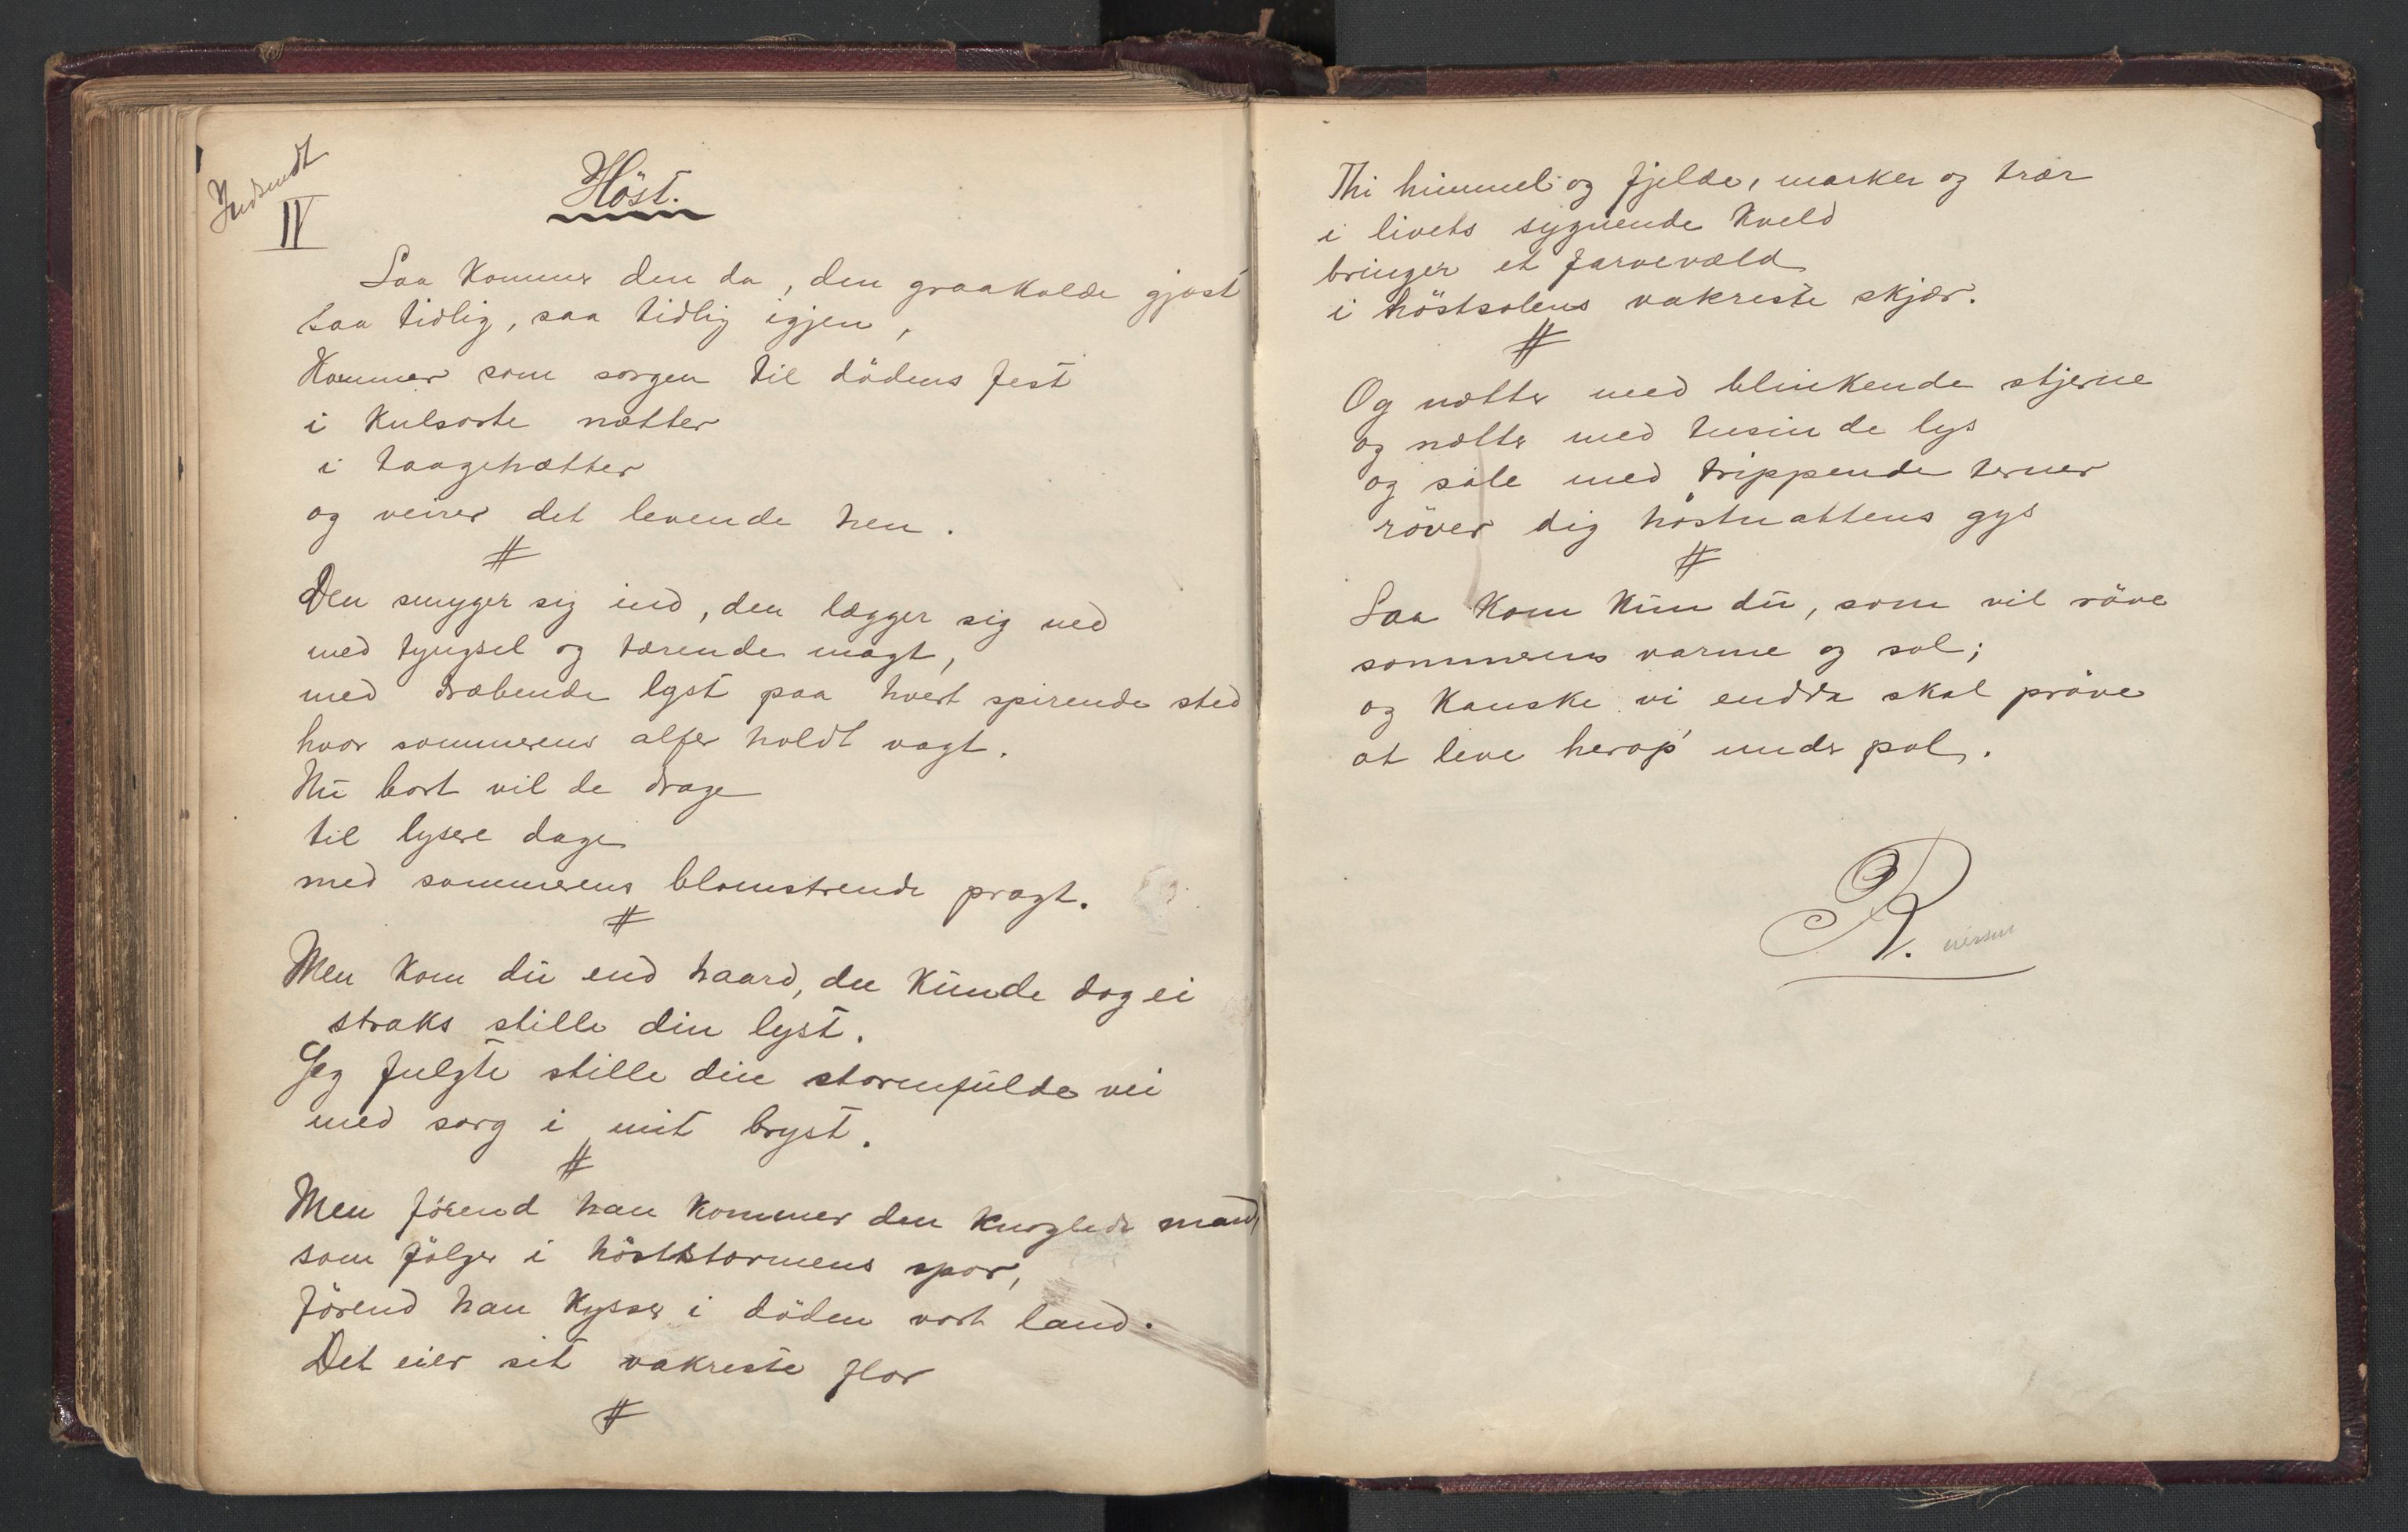 Indsendt
IV
Höst.
Saa kommer den da, den graakolde gjæst
saa tidlig, saa tidlig igjen,
Kommer som sorgen til dödens fest
i kulsorte nætter
i taagehætter
og veirer det levende hen.
#
Den smyger sig ind, den lægger sig ned
med tyngsel og tærende magt,
med dræbende lyst paa hvert spirende sted
hvor sommerens alfer holdt vagt.
Nu bort vil de drage
til lysere dage
med sommerens blomstrende pragt.
#
Men kom du end haard, du kunde dog ei
straks stille din lyst.
Jeg fulgte stille din stormfulde vei
med sorg i mit bryst.
#
Men förend han kommer den knoglede mand,
som fölger i höststormens spor,
förend han kysser i döden vort land.
Det eier sit vakreste flor
#
Thi himmel og fjelde, marker og trær
i livets sygnende kveld
bringer et farvevæld
i höstsolens vakreste skjær.
#
Og nætter med blinkende stjerne
og nætter med tusinde lys
og sale med trippende terner
röver dig höstnattens gys
#
Saa kom kun du, som vil röve
sommerens varme og sol;
og kanske vi endda skal pröve
at leve herop' under pol.
R.